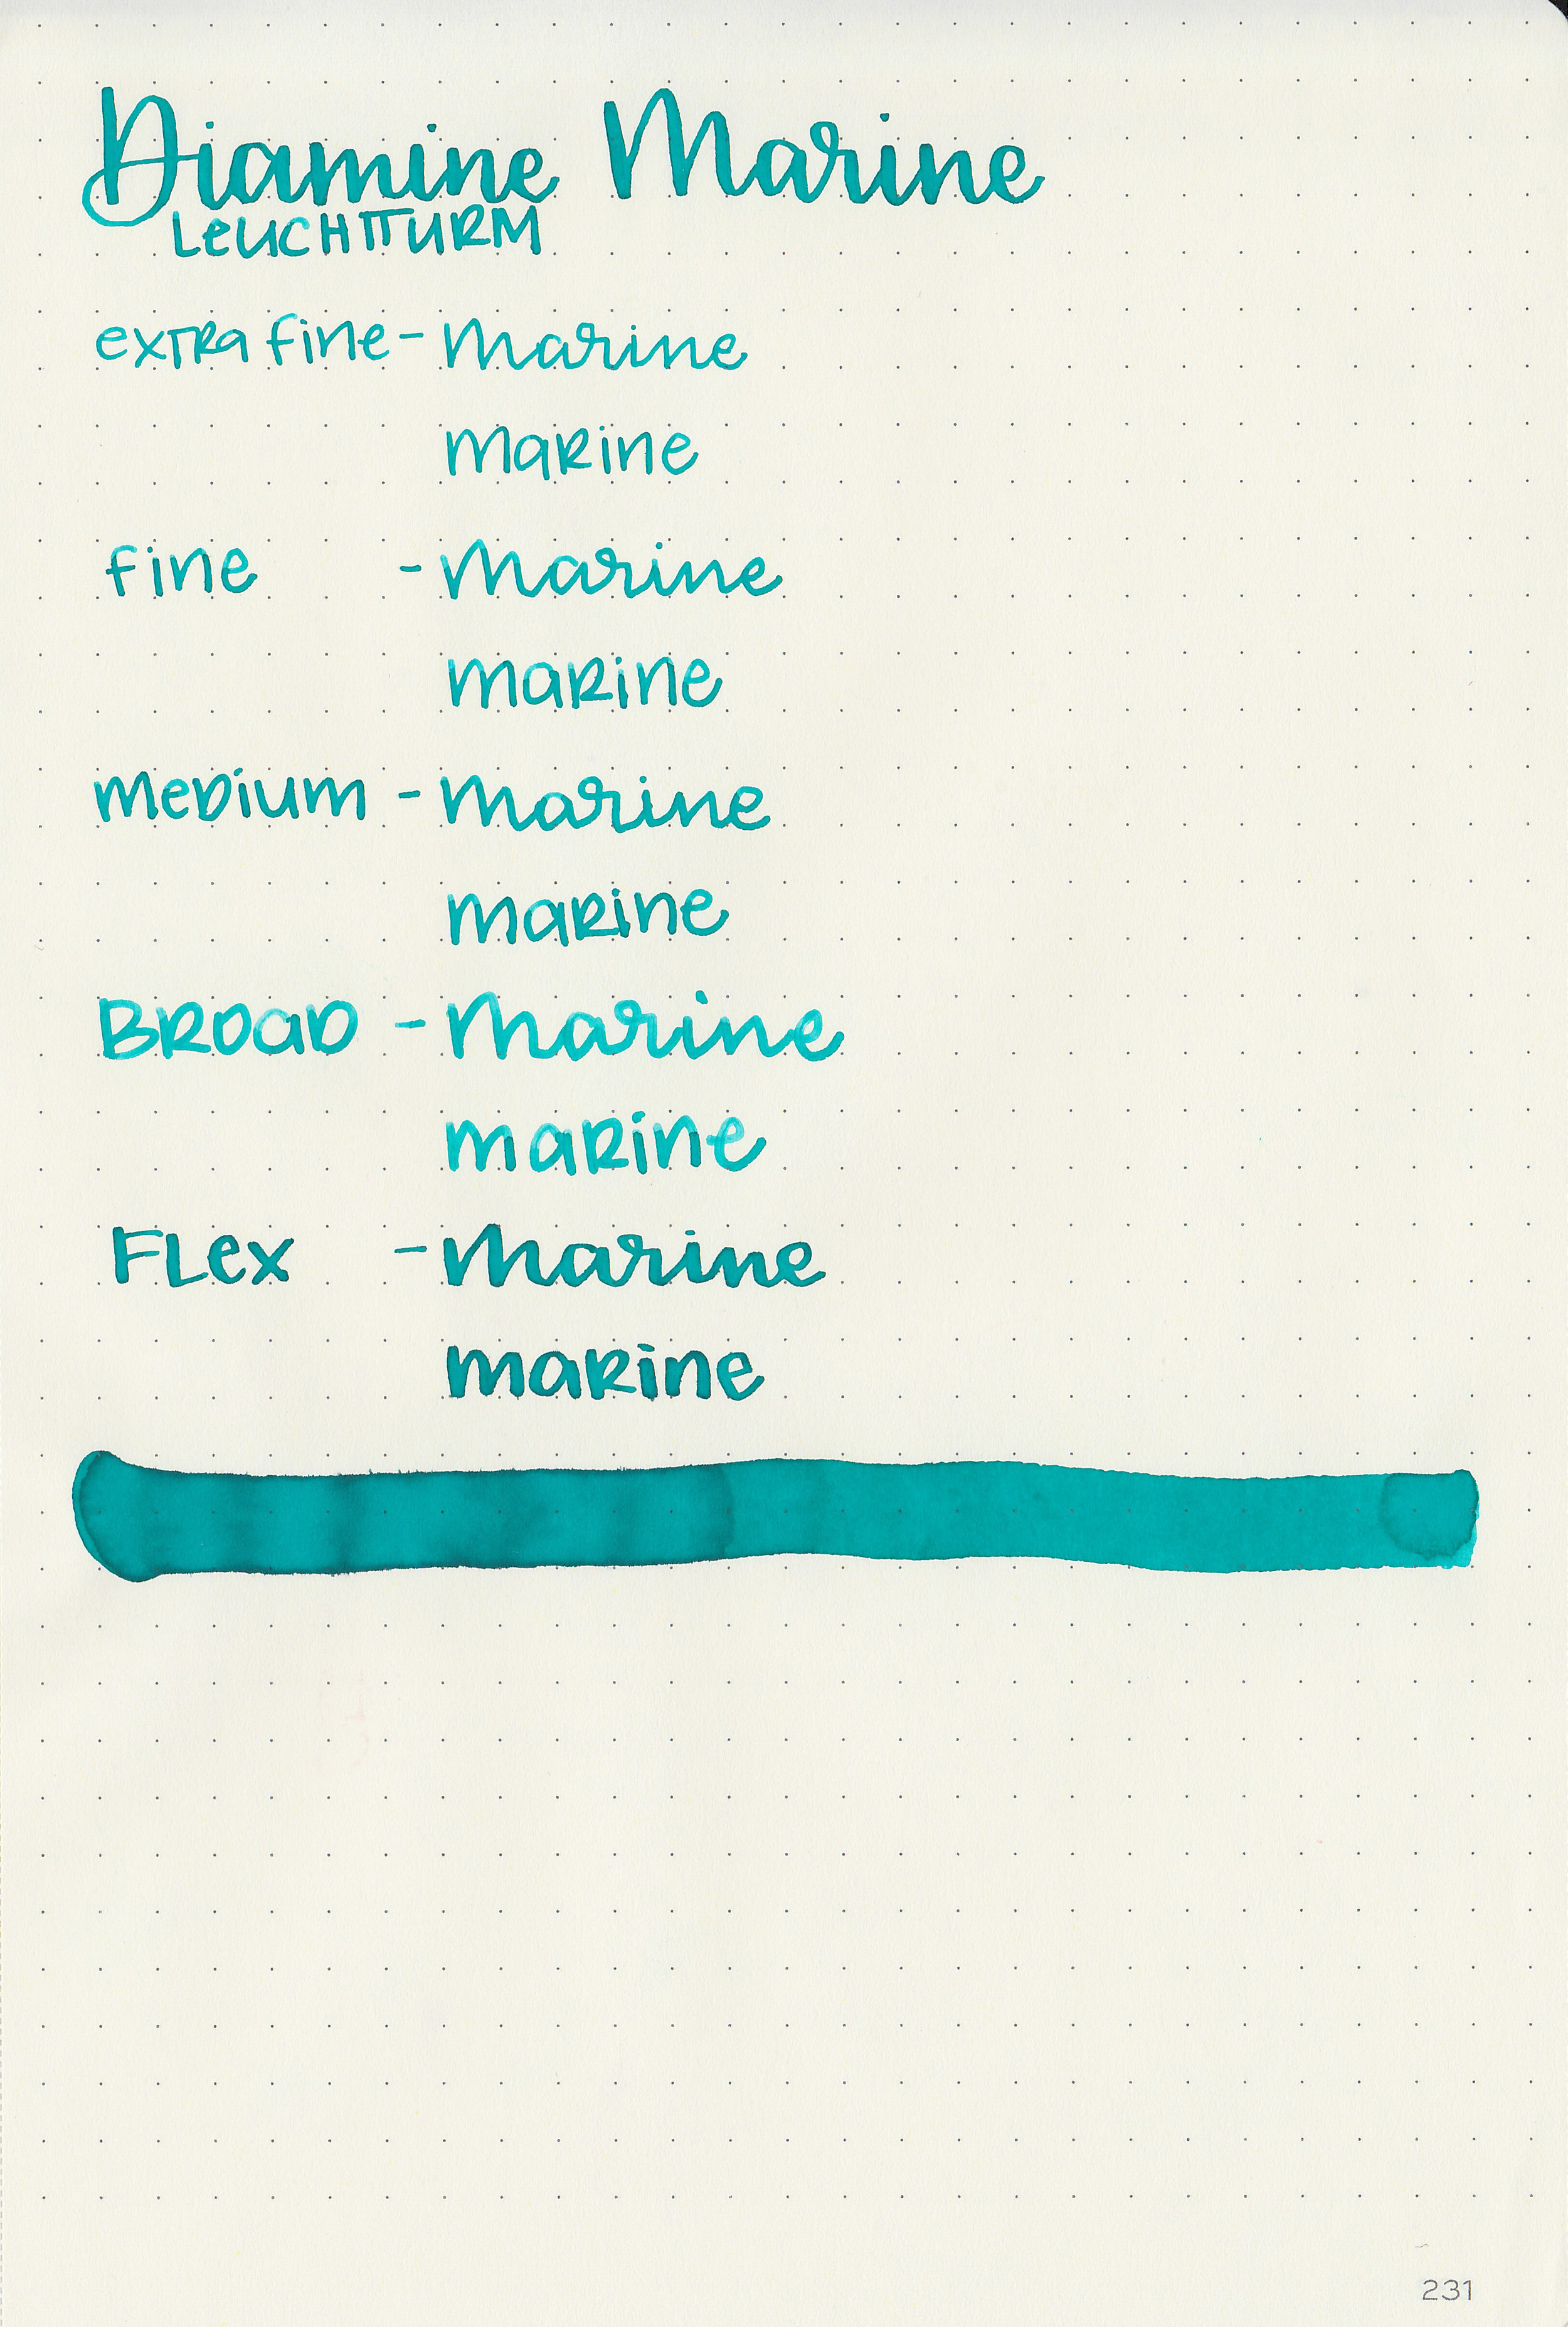 Diamine Marine
LEUCHTTURM
extra fine - Marine
marine
fine - Marine
marine
medium - Marine
marine
BROAD - Marine
marine
FLex - Marine
marine
231